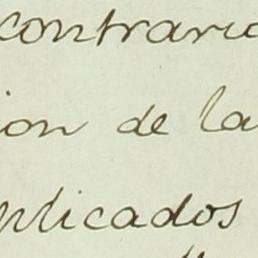 contrario
ion de la
plicados